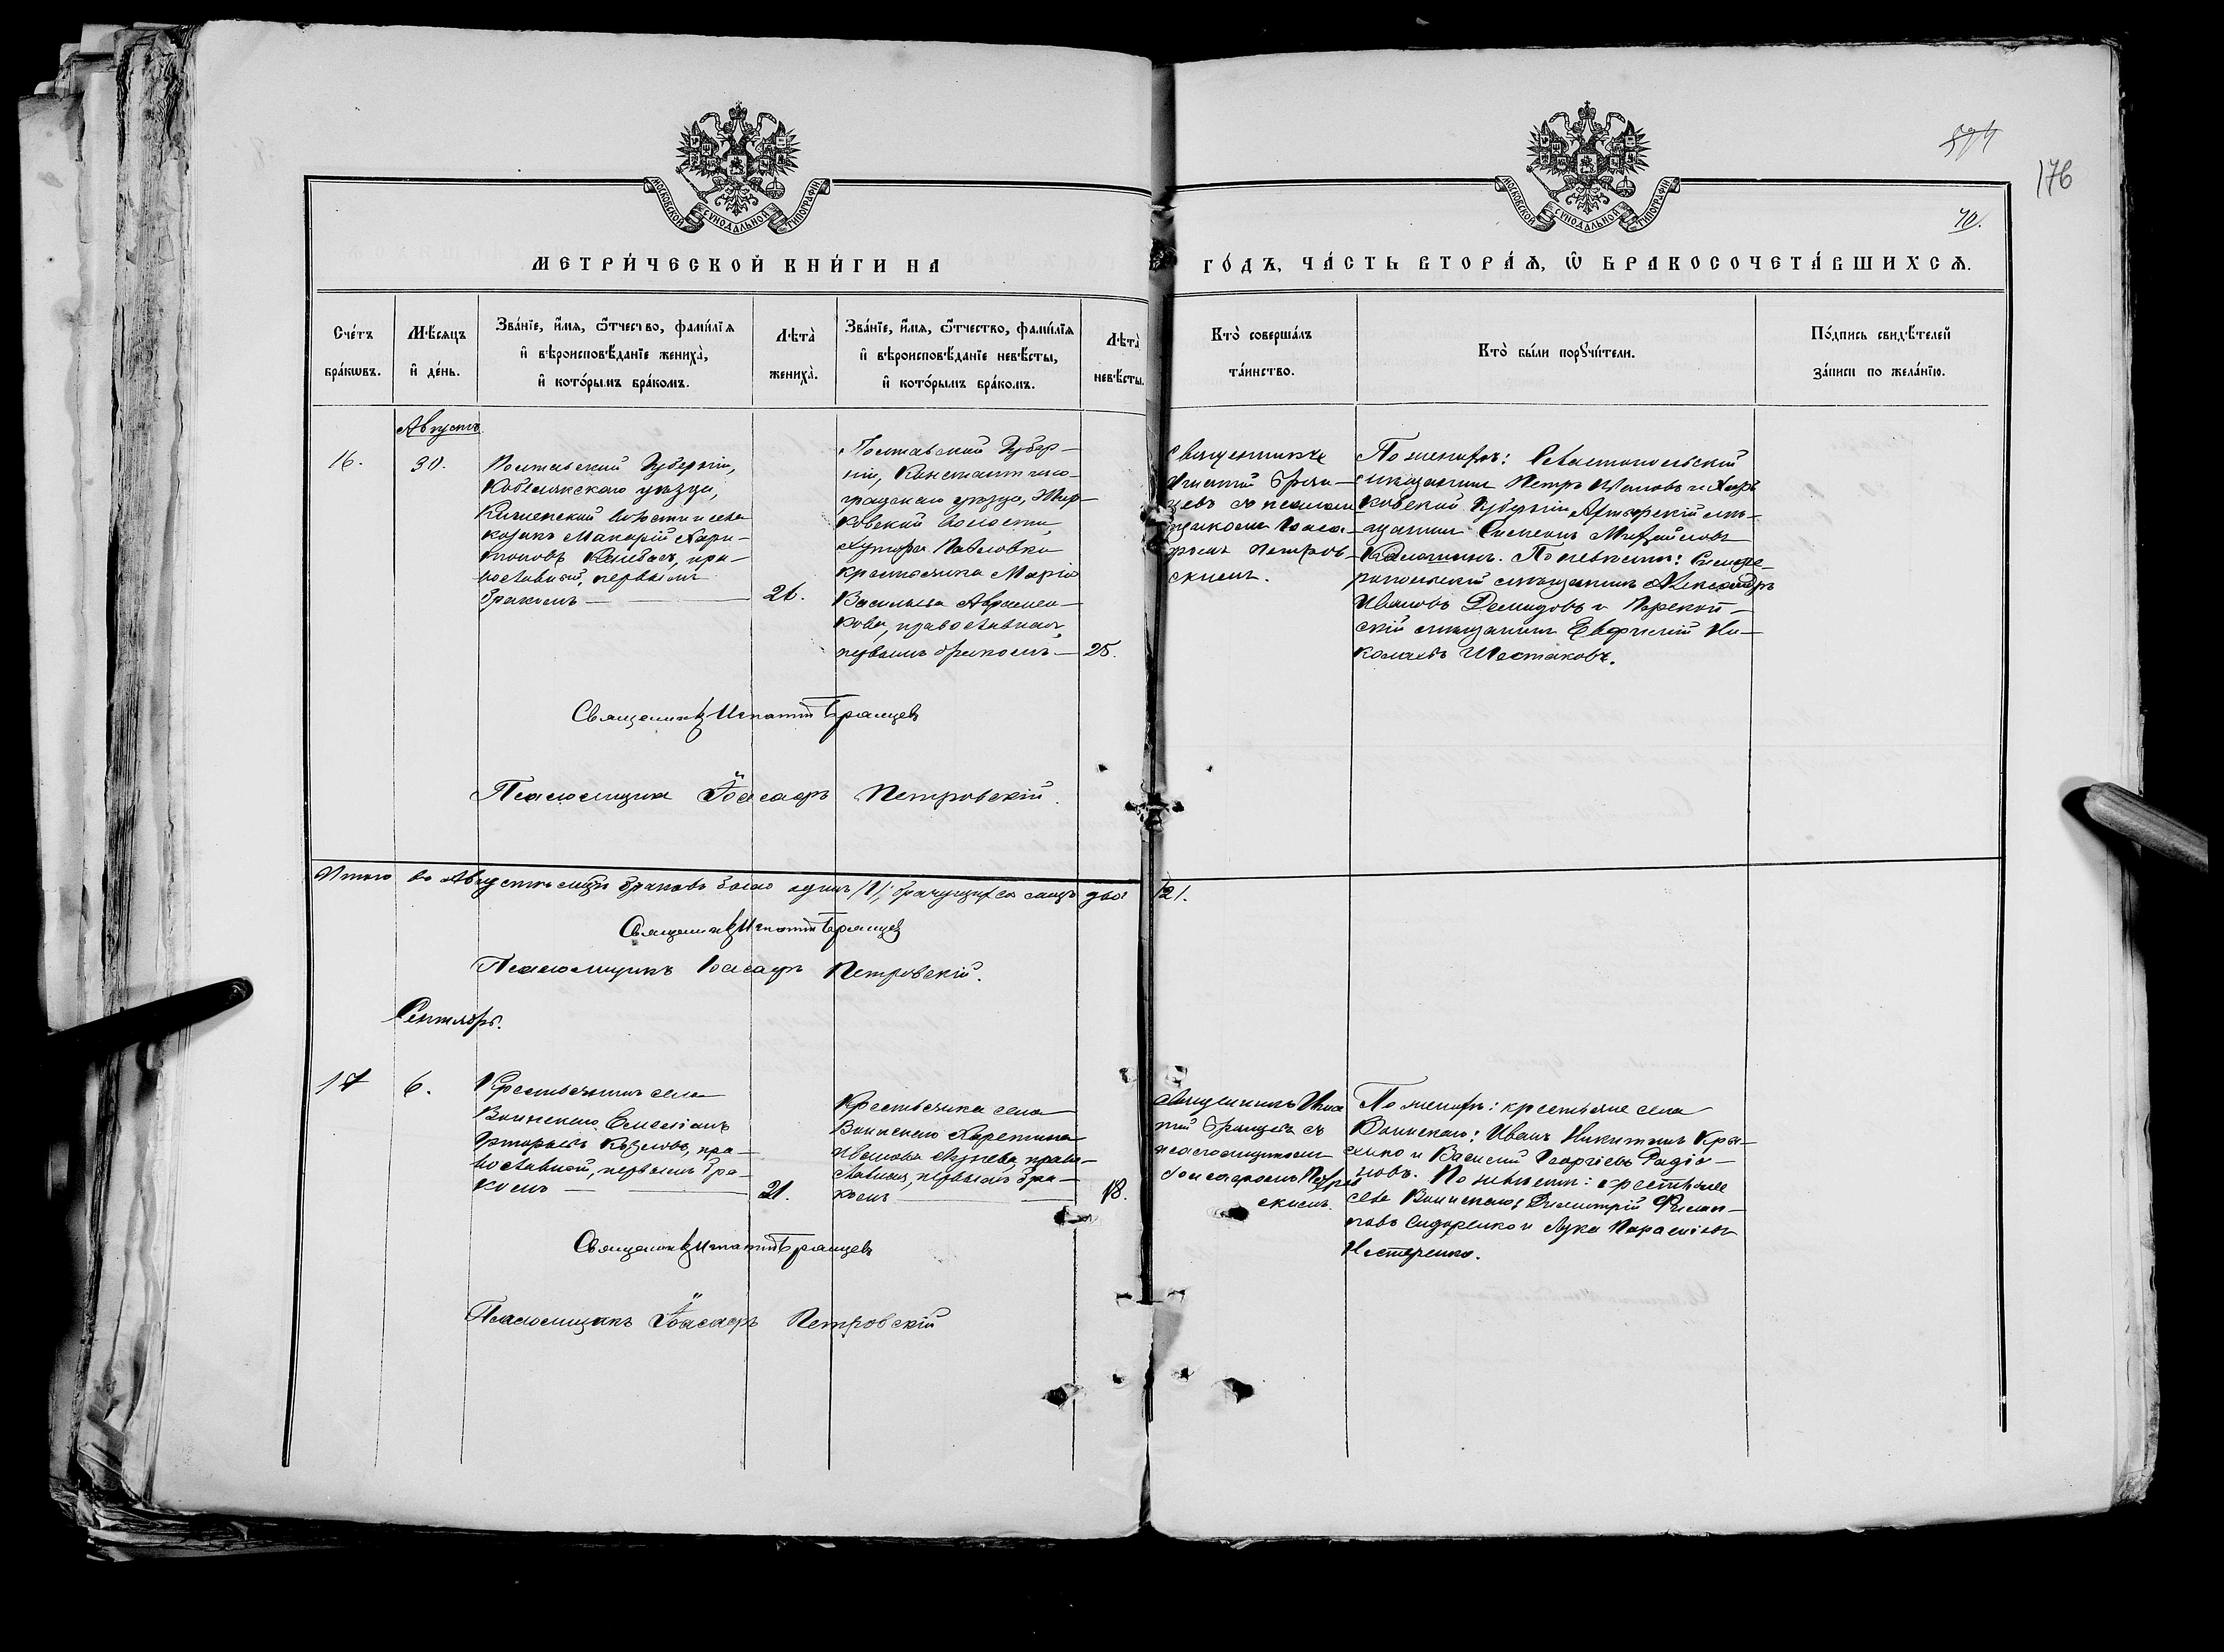 176
40.
МОСКОВСКОЙ СУНОДАЛЬНОЙ ТИПОГРАФІИ
МОСКОВСКОЙ СУНОДАЛЬНОЙ ТИПОГРАФІИ
МЕТРИ́ЧЕСКОЙ КНИ́ГИ НА
ГО́ДЪ, ЧА́СТЬ ВТОРА́Ѧ, Ѡ҆ БРАКОСОЧЕТА́ВШИХСѦ.
Сче́тъ
бра́кѡвъ.
Мѣ́сѧцъ
и҆ де́нь.
Зва́нїе, и҆́мѧ, ѻ҆́тчество, фами́лїѧ
и҆ вѣроисповѣ́данїе жениха̀,
и҆ кото́рымъ бра́комъ.
Лѣ́та
жениха̀.
Зва́нїе, и҆́мѧ, ѻ҆́тчество, фами́лїѧ
и҆ вѣроисповѣ́данїе невѣ́сты,
и҆ кото́рымъ бра́комъ.
Лѣ́та
невѣ́сты.
Кто̀ соверша́лъ
та́инство.
Кто̀ бы́ли порꙋчи́тели.
По́дпись свидѣ́телей
за́писи по жела́нїю.
Августъ.
16.
30.
Полтавской Губерніи,
Кобелякскаго уѣзда,
волости и села
козакъ Макарій Хари-
тоновъ пра-
вославный, первымъ
бракомъ —
26.
Полтавской Губер-
ніи, Константино-
градскаго уѣзда,
волости,
хутора Павловки
крестьянка Марія
Васильева Авраmен-
кова, православная,
первымъ бракомъ —
25.
Священникъ
Игнатій Бран-
цевъ съ псалом-
щикомъ Іоаса-
фомъ Петров-
скимъ.
По женихѣ: Севастопольскій
мѣщанинъ Петръ Ивановъ и Харь-
ковской Губерніи Ахтырскій мѣ-
щанинъ Симеонъ Михайловъ
По невѣстѣ: Симфе-
ропольскій мѣщанинъ Александръ
Ивановъ Демидовъ и Перекоп-
скій мѣщанинъ Евфимій Ни-
колаевъ Шестаковъ.
Священникъ Игнатій Бранцевъ
Псаломщикъ Іоасафъ Петровскій.
Итого въ Августѣ мѣсяцѣ браковъ было одинъ /1/, брачущихся лицъ два /2/.
Священникъ Игнатій Бранцевъ
Псаломщикъ Іоасафъ Петровскій.
Сентябрь.
17
6.
Крестьянинъ села
Воинскаго Емеліанъ
Григорьевъ Козловъ, пра-
вославный, первымъ бра-
комъ —
21.
Крестьянка села
Воинскаго Харитина
Иванова право-
славная, первымъ бра-
комъ
18.
Священникъ Игна
тій Бранцевъ съ
псаломщикомъ
Іоасафомъ Петров
скимъ.
По женихѣ: крестьяне села
Воинскаго: Иванъ Никитинъ Кра-
и Василій Георгіевъ Радіо-
новъ. По невѣстѣ: крестьяне
села Воинскаго: Димитрій Филип-
повъ Сидоренко и Лука
Нестеренко.
Священникъ Игнатій Бранцевъ
Псаломщикъ Іоасафъ Петровскій